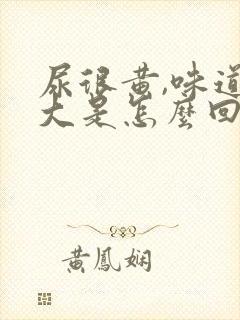 尿很黄,味道
大是怎麼回
黄鳳娴